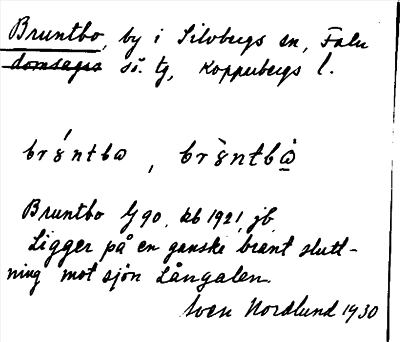 Bruntbo, by i Silvbergs sn, Falu
domsaga sö. tg, Kopparbergs l.
brúntbo, brùntbò
Bruntbo 1/90, kb 1921, jb
Ligger på en ganske brant slutt-
ning mot sjön Långalen.
Sven Nordlund 1930